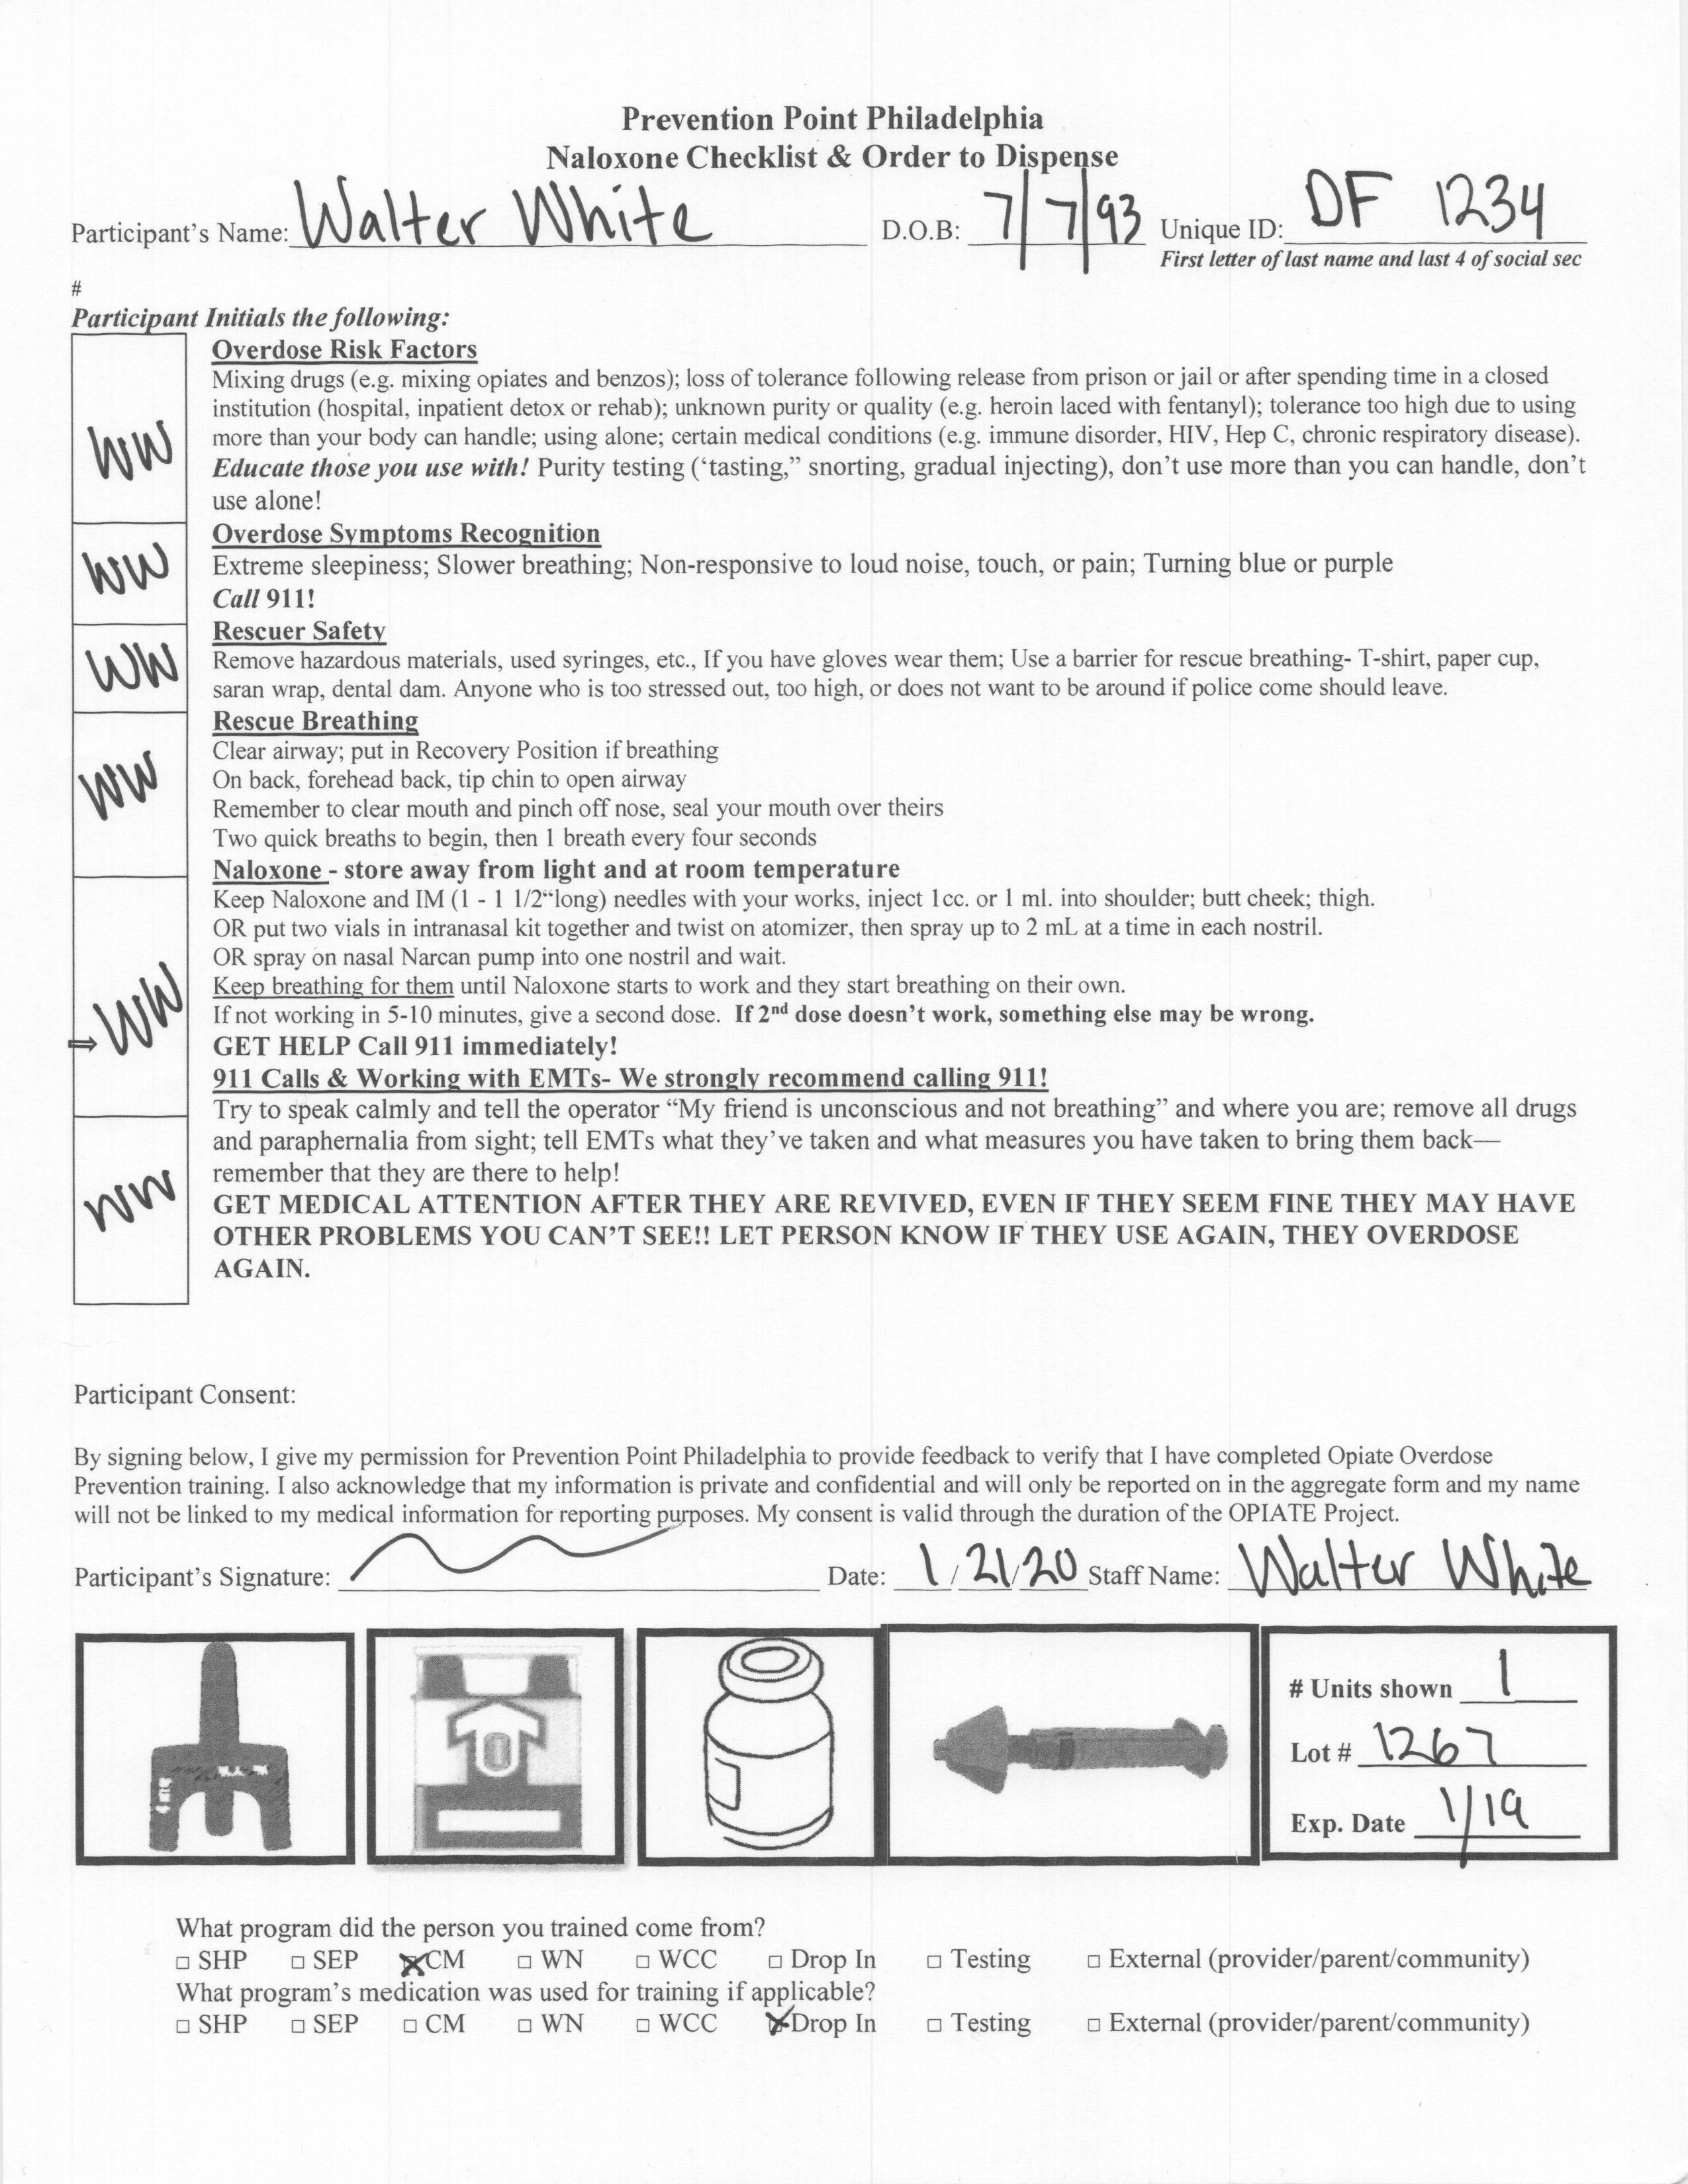 Prevention Point Philadelphia
Naloxone Checklist & Order to Dispense
Participant's Name: Walter White D.O.B: 7/7/93 Unique ID: DF 1234
First letter of last name and last 4 of social sec
#
Participant Initials the following:
Overdose Risk Factors
Mixing drugs (e.g. mixing opiates and benzos); loss of tolerance following release from prison or jail or after spending time in a closed
institution (hospital, inpatient detox or rehab); unknown purity or quality (e.g. heroin laced with fentanyl); tolerance too high due to using
WW more than your body can handle; using alone; certain medical conditions (e.g. immune disorder, HIV, Hep C, chronic respiratory disease).
Educate those you use with! Purity testing ('tasting," snorting, gradual injecting), don't use more than you can handle, don't
use alone!
Overdose Symptoms Recognition
WW Extreme sleepiness; Slower breathing; Non-responsive to loud noise, touch, or pain; Turning blue or purple
Call 911!
Rescuer Safety
WW Remove hazardous materials, used syringes, etc., If you have gloves wear them; Use a barrier for rescue breathing- T-shirt, paper cup,
saran wrap, dental dam. Anyone who is too stressed out, too high, or does not want to be around if police come should leave.
Rescue Breathing
Clear airway; put in Recovery Position if breathing
WW On back, forehead back, tip chin to open airway
Remember to clear mouth and pinch off nose, seal your mouth over theirs
Two quick breaths to begin, then 1 breath every four seconds
Naloxone - store away from light and at room temperature
Keep Naloxone and IM (1 - 1 1/2"long) needles with your works, inject 1cc. or 1 ml. into shoulder; butt cheek; thigh.
OR put two vials in intranasal kit together and twist on atomizer, then spray up to 2 mL at a time in each nostril.
OR spray on nasal Narcan pump into one nostril and wait.
Keep breathing for them until Naloxone starts to work and they start breathing on their own.
⇒ WW If not working in 5-10 minutes, give a second dose. If 2nd dose doesn't work, something else may be wrong.
GET HELP Call 911 immediately!
911 Calls & Working with EMTs- We strongly recommend calling 911!
Try to speak calmly and tell the operator "My friend is unconscious and not breathing" and where you are; remove all drugs
and paraphernalia from sight; tell EMTs what they've taken and what measures you have taken to bring them back—
remember that they are there to help!
WW GET MEDICAL ATTENTION AFTER THEY ARE REVIVED, EVEN IF THEY SEEM FINE THEY MAY HAVE
OTHER PROBLEMS YOU CAN'T SEE!! LET PERSON KNOW IF THEY USE AGAIN, THEY OVERDOSE
AGAIN.
Participant Consent:
By signing below, I give my permission for Prevention Point Philadelphia to provide feedback to verify that I have completed Opiate Overdose
Prevention training. I also acknowledge that my information is private and confidential and will only be reported on in the aggregate form and my name
will not be linked to my medical information for reporting purposes. My consent is valid through the duration of the OPIATE Project.
Participant's Signature: Date: 1/21/20 Staff Name: Walter White
# Units shown 1
Lot # 1267
Exp. Date 1/19
What program did the person you trained come from?
□ SHP □ SEP ☒ CM □ WN □ WCC □ Drop In □ Testing □ External (provider/parent/community)
What program's medication was used for training if applicable?
□ SHP □ SEP □ CM □ WN □ WCC ☒ Drop In □ Testing □ External (provider/parent/community)